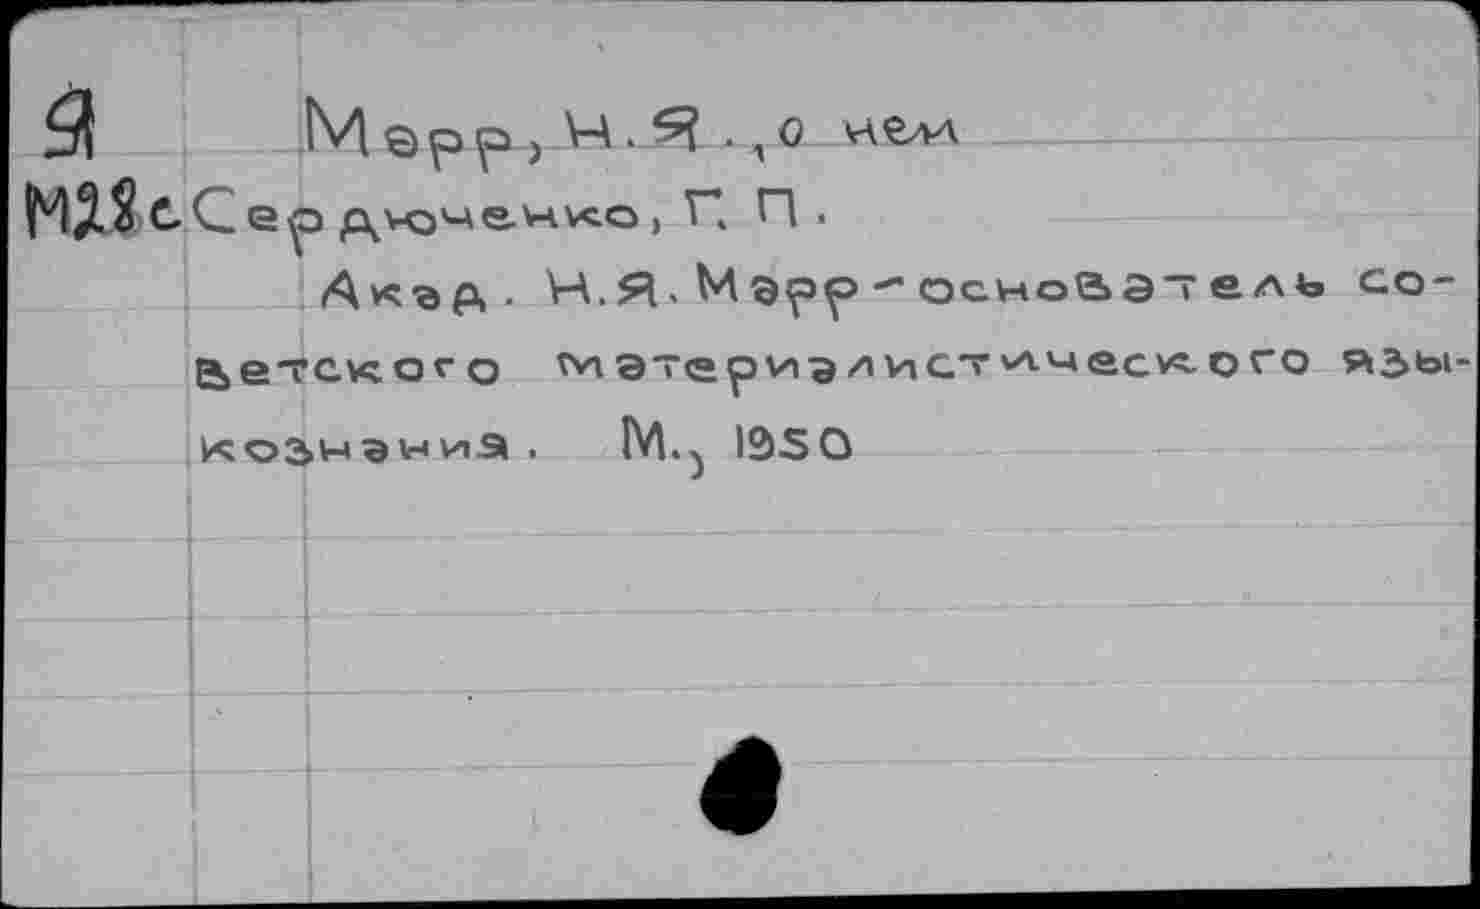 Я Марр, Н.Я., о нем
М28с Сердюченко, Г. П.
Акад. Н.Я. Марр - основатель со-
ветского материалистического язы-
кознания. М., 1950